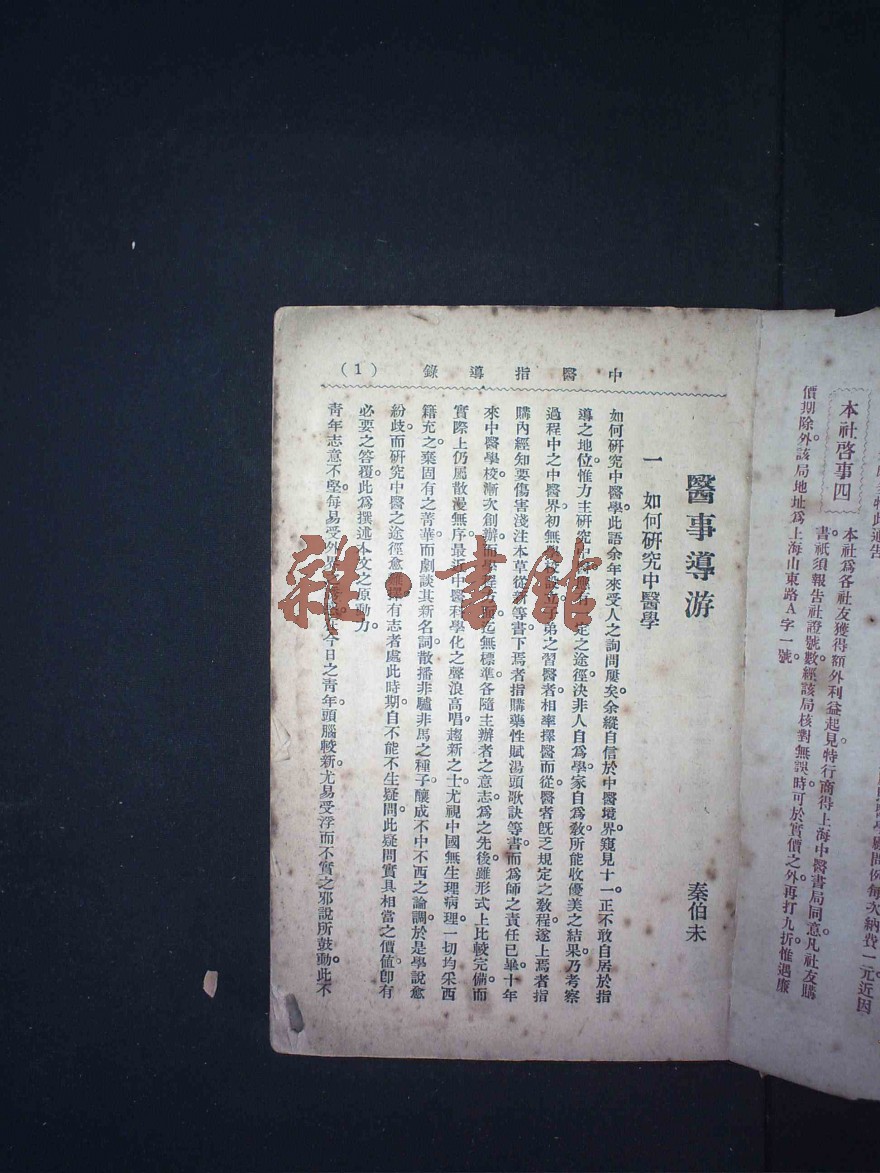 中醫指導錄
(1)
醫事導游
秦伯未
一 如何研究中醫學
如何研究中醫學。此語余年來受人之詢問屢矣。余縱自信於中醫境界。窺見十一。正不敢自居於指
導之地位。惟力主研究中 定之途徑。決非人自爲學。家自爲教。所能收優美之結果。乃考察
過程中之中醫界。初無學校 子弟之習醫者。相率擇醫而從。醫者既乏規定之教程。遂上焉者指
購內經知要傷害淺注本草從新等書。下焉者指購藥性賦湯頭歌訣等書。而爲師之責任已畢。十年
來中醫學校。漸次創辦。而學程 迄無標準。各隨主辦者之意志爲之先後。雖形式上比較完備。而
實際上仍屬散漫無序。最近中醫科學化之聲浪高唱。趨新之士。尤視中國無生理病理。一切均采西
籍充之。棄固有之菁華。而劇談其新名詞。散播非驢非馬之種子。釀成不中不西之論調。於是學說愈
紛歧。而研究中醫之途徑愈難 有志者處此時期。自不能不生疑問。此疑問實具相當之價值。卽有
必要之答覆。此爲撰述本文之原動力。
青年志意不堅。每易受外界之 今日之青年。頭腦較新。尤易受浮而不實之邪說所鼓動。此不
雜·書館
本社啓事四
本社爲各社友獲得額外利益起見。特行商得上海中醫書局同意。凡社友購
書。祇須報告社證號數。經該局核對無誤。時可於實價之外。再打九折。惟遇廉
價期除外。該局地址爲上海山東路A字一號。
例每次納費一元。近因
此通告